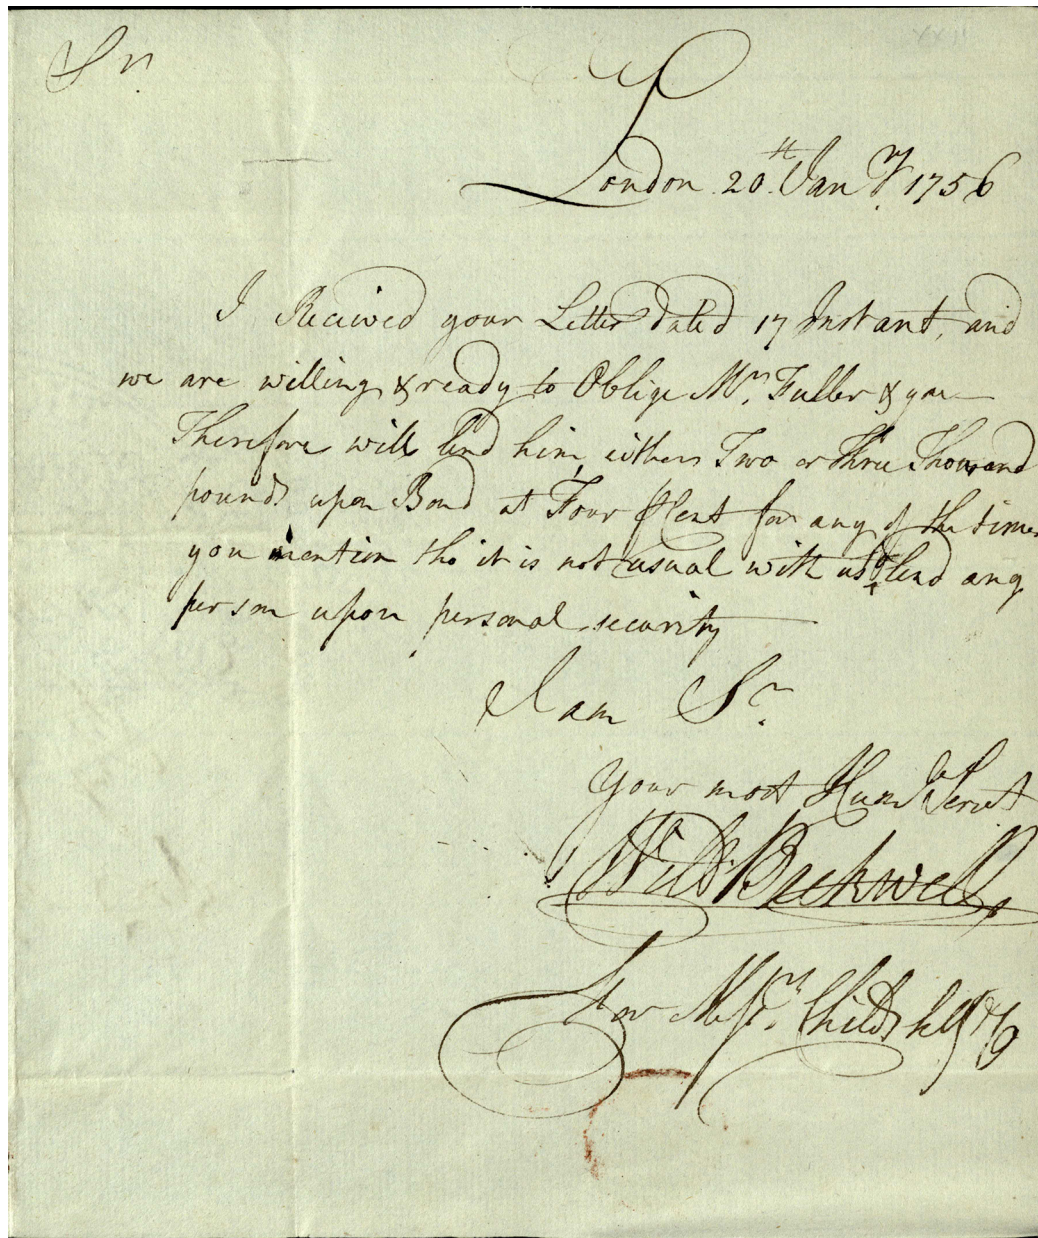 Sr
London 20th Janry 1756
I Reciived your Letter dated 17 Instant, and
we are willing & ready to Oblige Mr. Fuller & you
Therefore will lend him, either Two or Three Thousand
pounds upon Bond at Four P Cent for any of the times
you mention tho it is not usual with us to lend any
person upon personal security
I am Sr.
Your most Humle Servt
Willm Backwell
For Messrs. Child & Co